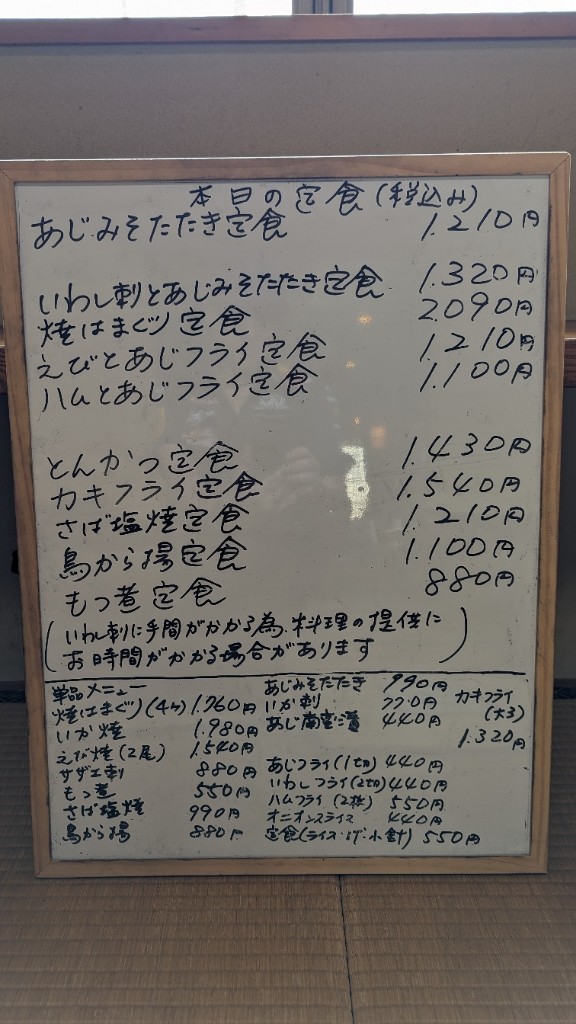 本日の定食(税込み)
あじみそたたき定食 1.210円
いわし刺とあじみそたたき定食 1.320円
焼はまぐり定食 2.090円
えびとあじフライ定食 1.210円
ハムとあじフライ定食 1.100円
とんかつ定食 1.430円
カキフライ定食 1.540円
さば塩焼定食 1.210円
鳥から揚定食 1.100円
もつ煮定食 880円
(いわし刺に手間がかかる為、料理の提供に
お時間がかかる場合があります)
単品メニュー
焼はまぐり(4ヶ) 1.760円
いか焼 1.980円
えび焼(2尾) 1.540円
サザエ刺 880円
もつ煮 550円
さば塩焼 990円
鳥から揚 880円
あじみそたたき 990円
いか刺 770円
あじ南蛮漬 440円
あじフライ(1切) 440円
いわしフライ(2切) 440円
ハムフライ(2枚) 550円
オニオンスライス 440円
定食(ライス・汁・小針) 550円
カキフライ
(大3)
1.320円